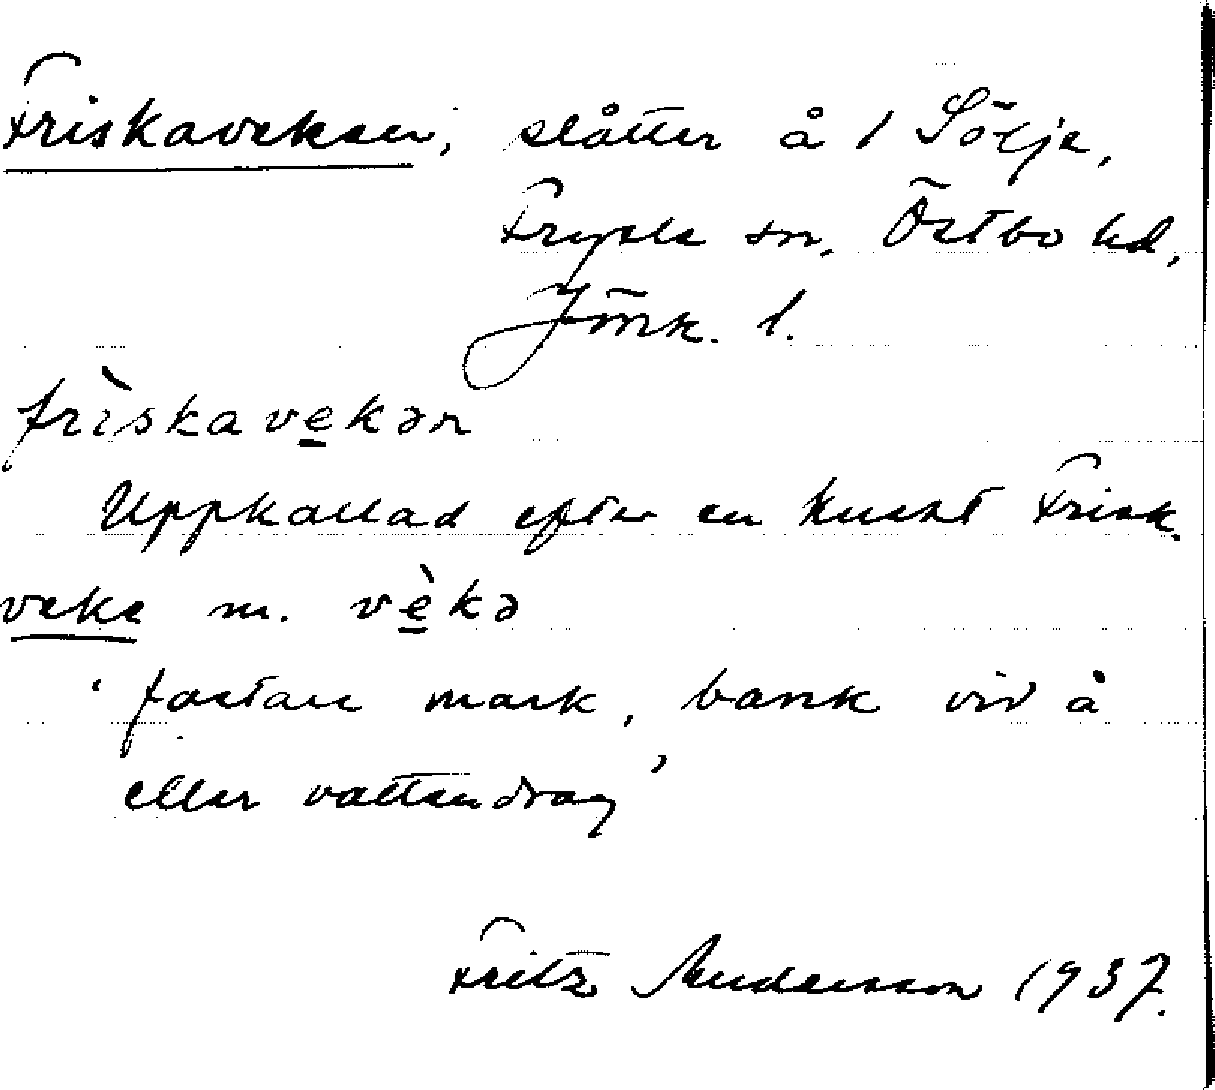 Friskaveken, slåtter å 1 Sölje,
Fryele sn, Östbo hd,
Jönk. l.
friskavekən
Uppkallad efter en knekt Frisk.
veke m. vèkə
'fastare mark, bank vid å
eller vattendrag'
Fritz Andersson 1937.